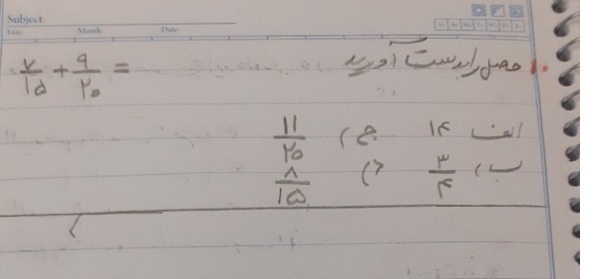 Subject:
Year: Month Date:
۱. حاصل را بدست آورید
۷/۱۵ + ۹/۲۰ =
الف ۱۴ ج) ۱۱/۲۰
ب) ۳/۴ د) ۸/۱۵